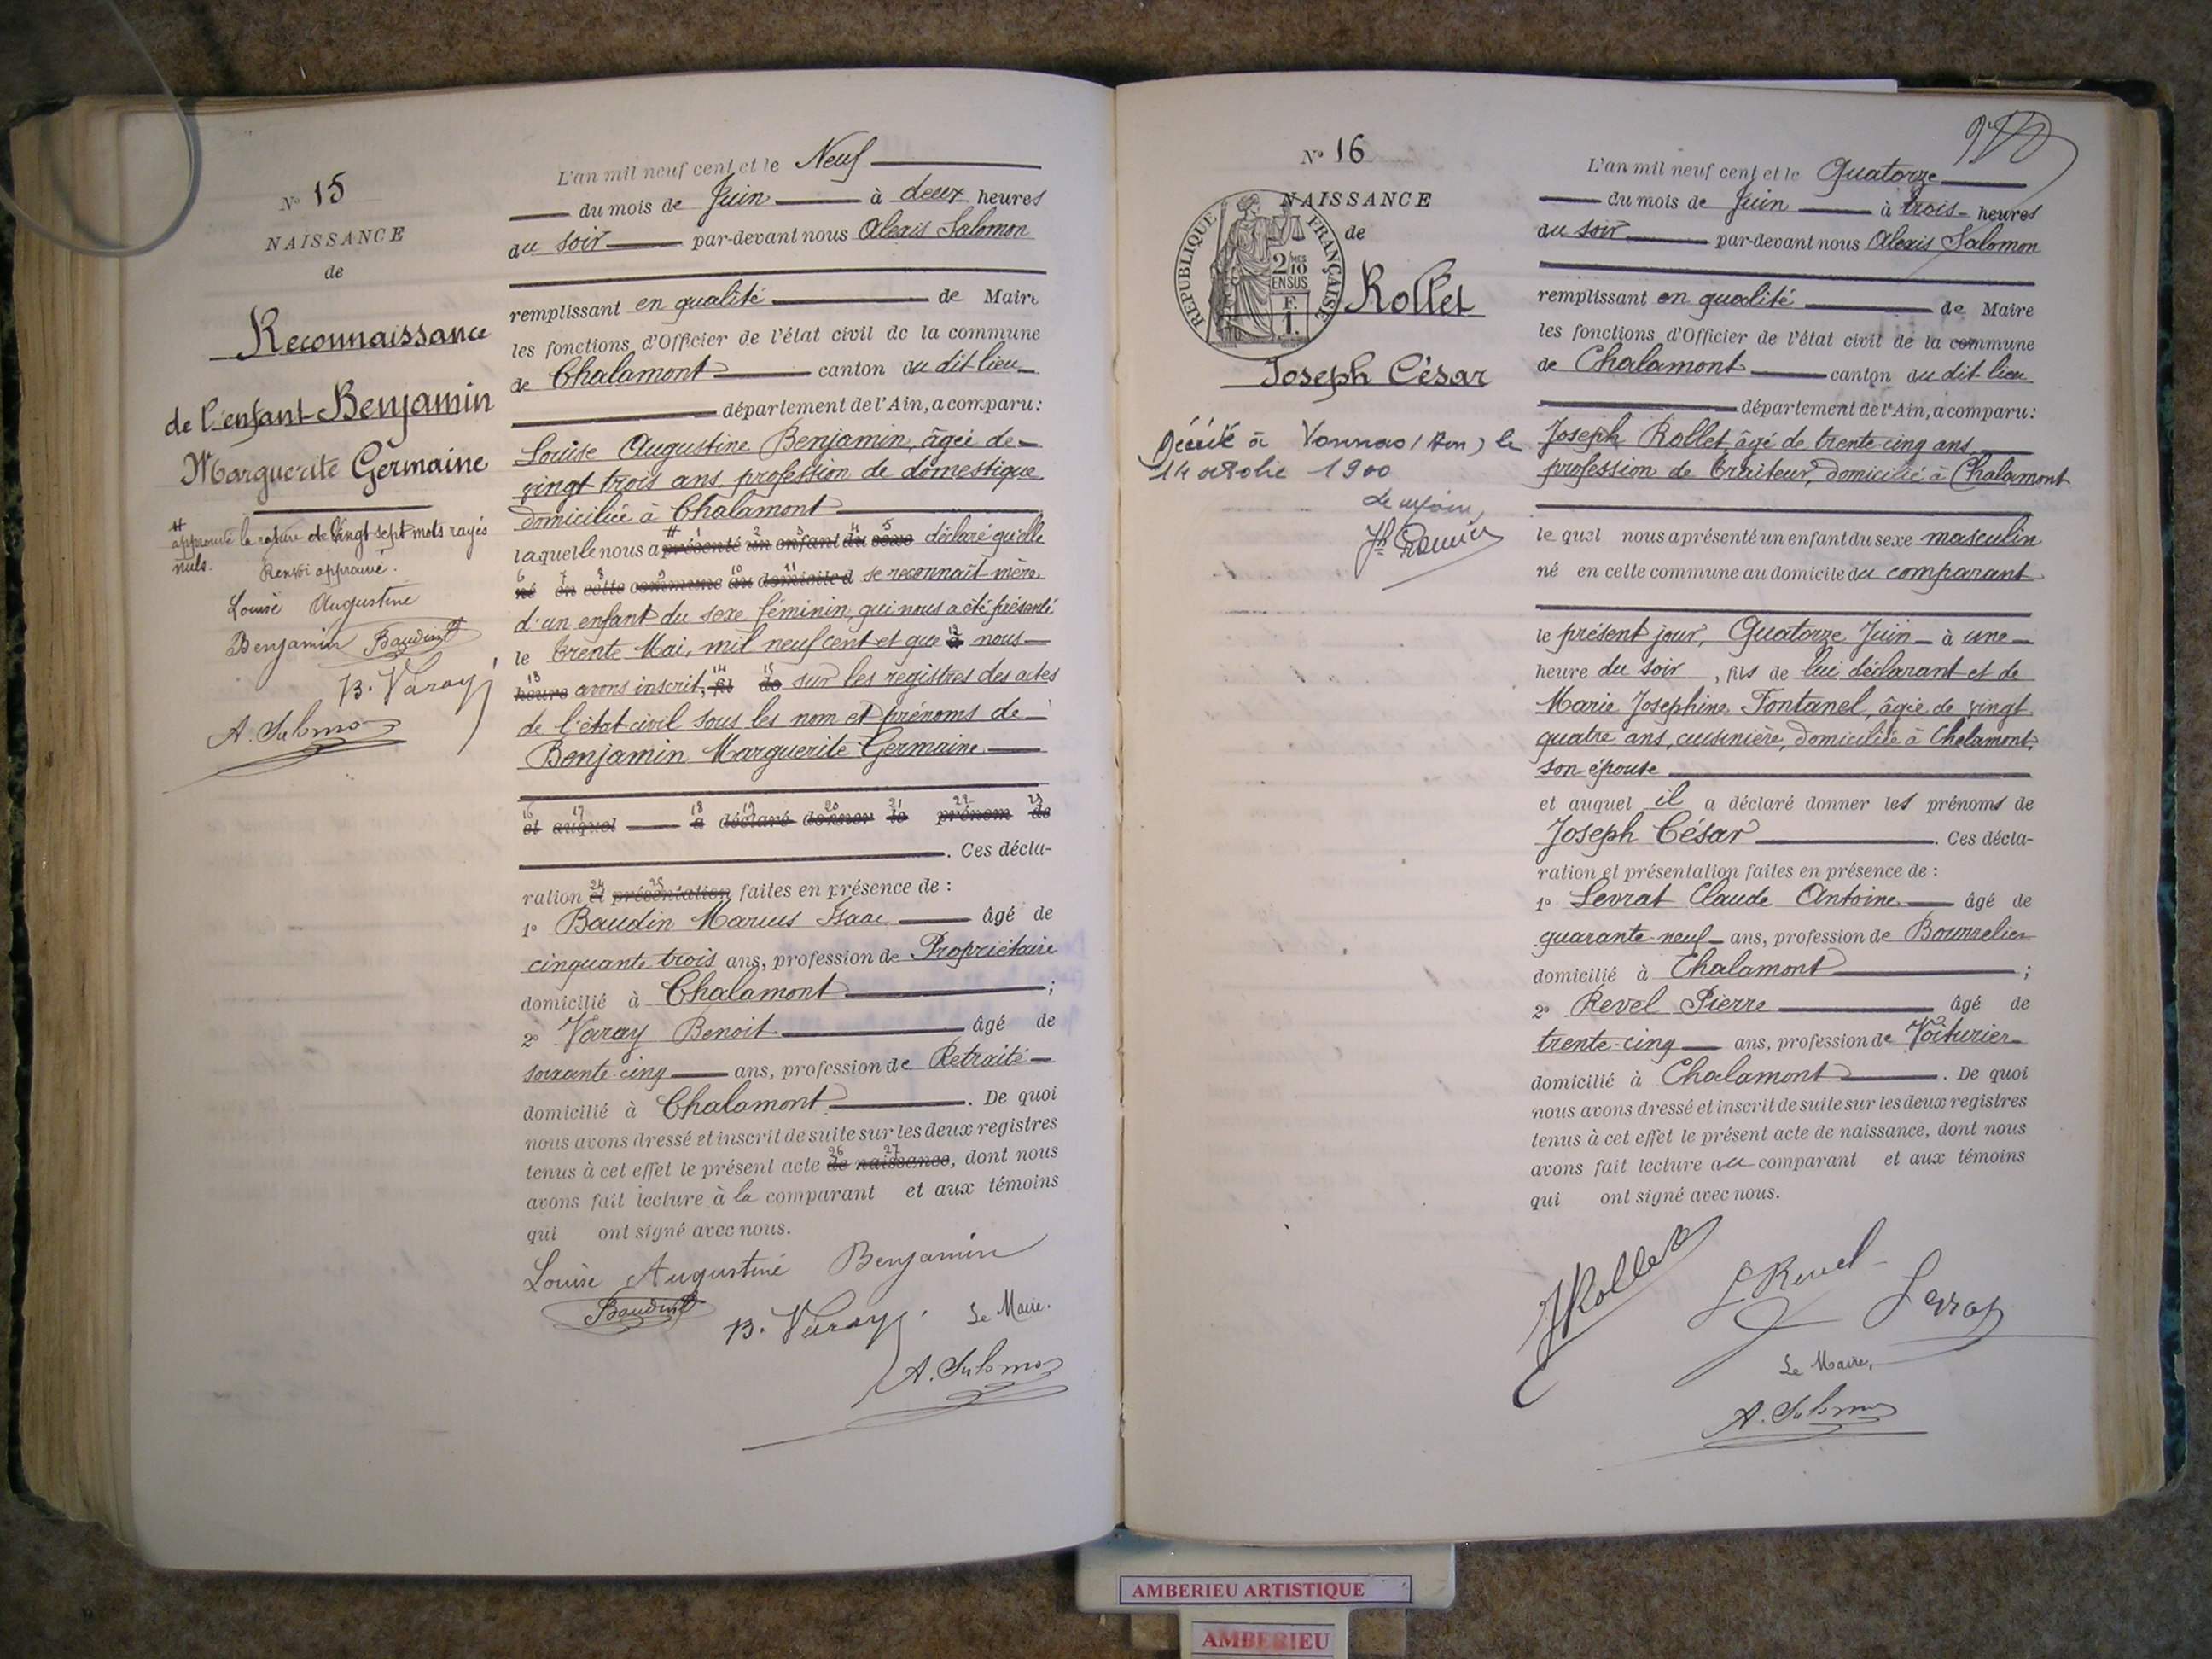 N° 15
NAISSANCE
de
Reconnaissance
de l'enfant Benjamin
Marguerite Germaine
# approuvé la rature de vingt-sept mots rayés
nuls. Renvoi approuvé.
Louise Augustine
Benjamin Baudin
B. Varay
A. Salomon
L'an mil neuf cent et le Neuf
du mois de Juin à deux heures
du soir par-devant nous Alexis Salomon
remplissant en qualité de Maire
les fonctions d'Officier de l'état civil de la commune
de Chalamont canton du dit lieu
département de l'Ain, a comparu:
Louise Augustine Benjamin, âgée de
vingt trois ans profession de domestique
domiciliée à Chalamont
laquelle nous a # présenté 2 un 3 enfant 4 du 5 sexe déclaré qu'elle
6 né 7 en 8 cette 9 commune 10 au 11 domicile d se reconnaît mère
d'un enfant du sexe féminin, qui nous a été présenté
le trente Mai, mil neuf cent et que 12 à nous
13 heure avons inscrit, 14 fil 15 de sur les registres des actes
de l'état civil sous les nom et prénoms de
Benjamin Marguerite Germaine
16 et 17 auquel 18 a 19 déclaré 20 donner 21 le 22 prénom 23 de
. Ces décla-
ration 24 et 25 présentation faites en présence de :
1° Baudin Marius Isaac âgé de
cinquante trois ans, profession de Propriétaire
domicilié à Chalamont ;
2° Varay Benoit âgé de
soixante-cinq ans, profession de Retraité
domicilié à Chalamont . De quoi
nous avons dressé et inscrit de suite sur les deux registres
tenus à cet effet le présent acte 26 de 27 naissance, dont nous
avons fait lecture à la comparant et aux témoins
qui ont signé avec nous.
Louise Augustine Benjamin
Baudin B. Varay Le Maire.
A. Salomon
N° 16
NAISSANCE
de
RÉPUBLIQUE FRANÇAISE
2/10 MES
EN SUS
F.
1.
Rollet
Joseph César
Décédé à Vonnas (Ain) le
14 octobre 1900
L'an mil neuf cent et le Quatorze
du mois de Juin à trois heures
du soir par-devant nous Alexis Salomon
remplissant en qualité de Maire
les fonctions d'Officier de l'état civil de la commune
de Chalamont canton du dit lieu
département de l'Ain, a comparu:
Joseph Rollet, âgé de trente-cinq ans
profession de traiteur, domicilié à Chalamont
le quel nous a présenté un enfant du sexe masculin
né en cette commune au domicile du comparant
le présent jour, Quatorze Juin à une
heure du soir , fils de lui déclarant et de
Marie Josephine Fontanel, âgée de vingt
quatre ans, cuisinière, domiciliée à Chalamont,
son épouse
et auquel il a déclaré donner les prénoms de
Joseph César . Ces décla-
ration et présentation faites en présence de :
1° Levrat Claude Antoine âgé de
quarante-neuf ans, profession de Bourrelier
domicilié à Chalamont ;
2° Revel Pierre âgé de
trente-cinq ans, profession de Voiturier
domicilié à Chalamont . De quoi
nous avons dressé et inscrit de suite sur les deux registres
tenus à cet effet le présent acte de naissance, dont nous
avons fait lecture au comparant et aux témoins
qui ont signé avec nous.
J Rollet Revel Levrat
Le Maire,
A. Salomon
AMBERIEU ARTISTIQUE
AMBERIEU